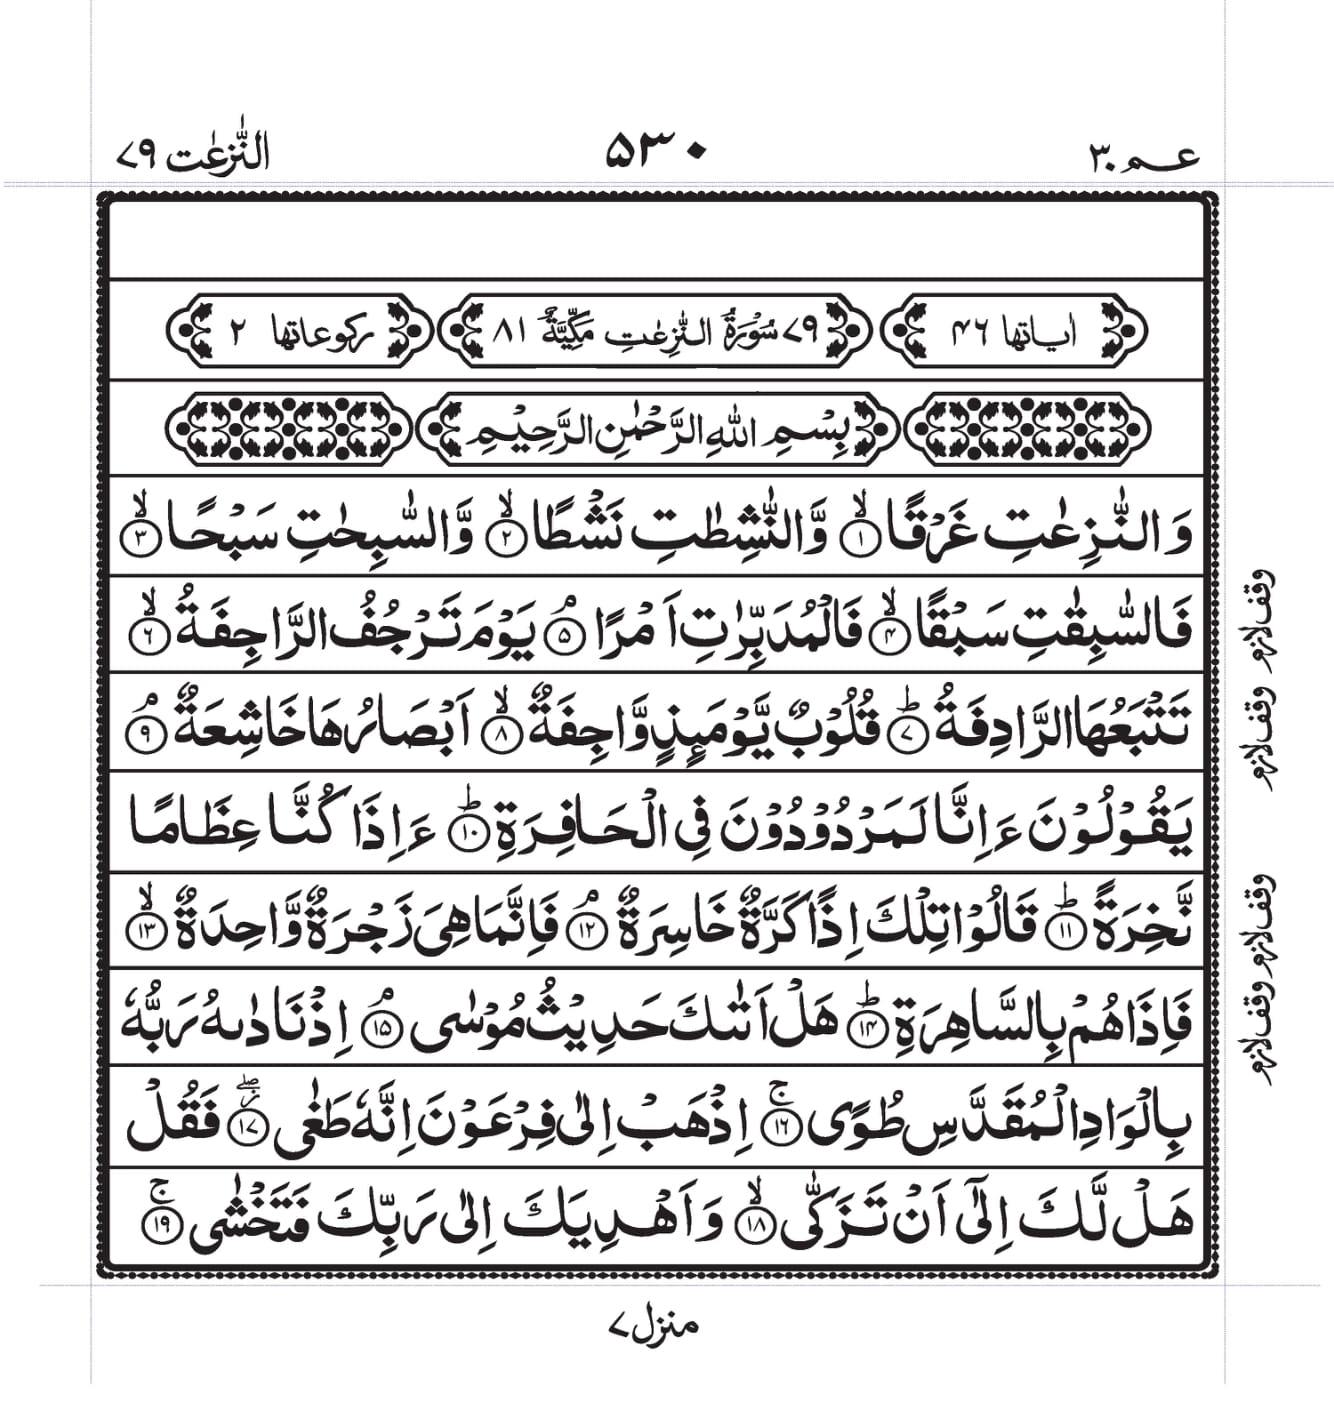 عـم ٣٠
۵۳۰
النّٰزعٰت ۷۹
اٰیاتها ۴۶
۷۹ سُوْرَةُ النّٰزِعٰتِ مَكِّيَّةٌ ۸۱
رکوعاتها ۲
بِسْمِ اللّٰهِ الرَّحْمٰنِ الرَّحِيْمِ
وَالنّٰزِعٰتِ غَرْقًا ۙ﴿۱﴾ وَّالنّٰشِطٰتِ نَشْطًا ۙ﴿۲﴾ وَّالسّٰبِحٰتِ سَبْحًا ۙ﴿۳﴾
فَالسّٰبِقٰتِ سَبْقًا ۙ﴿۴﴾ فَالْمُدَبِّرٰتِ اَمْرًا ۘ﴿۵﴾ يَوْمَ تَرْجُفُ الرَّاجِفَةُ ۙ﴿۶﴾
تَتْبَعُهَا الرَّادِفَةُ ؕ﴿۷﴾ قُلُوْبٌ يَّوْمَئِذٍ وَّاجِفَةٌ ۙ﴿۸﴾ اَبْصَارُهَا خَاشِعَةٌ ۘ﴿۹﴾
يَقُوْلُوْنَ ءَاِنَّا لَمَرْدُوْدُوْنَ فِي الْحَافِرَةِ ؕ﴿۱۰﴾ ءَاِذَا كُنَّا عِظَامًا
نَّخِرَةً ؕ﴿۱۱﴾ قَالُوْا تِلْكَ اِذًا كَرَّةٌ خَاسِرَةٌ ۘ﴿۱۲﴾ فَاِنَّمَا هِيَ زَجْرَةٌ وَّاحِدَةٌ ۙ﴿۱۳﴾
فَاِذَا هُمْ بِالسَّاهِرَةِ ؕ﴿۱۴﴾ هَلْ اَتٰىكَ حَدِيْثُ مُوْسٰى ۘ﴿۱۵﴾ اِذْ نَادٰىهُ رَبُّهٗ
بِالْوَادِ الْمُقَدَّسِ طُوًى ۚ﴿۱۶﴾ اِذْهَبْ اِلٰى فِرْعَوْنَ اِنَّهٗ طَغٰى ۖ﴿۱۷﴾ فَقُلْ
هَلْ لَّكَ اِلٰٓى اَنْ تَزَكّٰى ۙ﴿۱۸﴾ وَاَهْدِيَكَ اِلٰى رَبِّكَ فَتَخْشٰى ۚ﴿۱۹﴾
وقف لازم
وقف لازم
وقف لازم
وقف لازم
منزل ۷